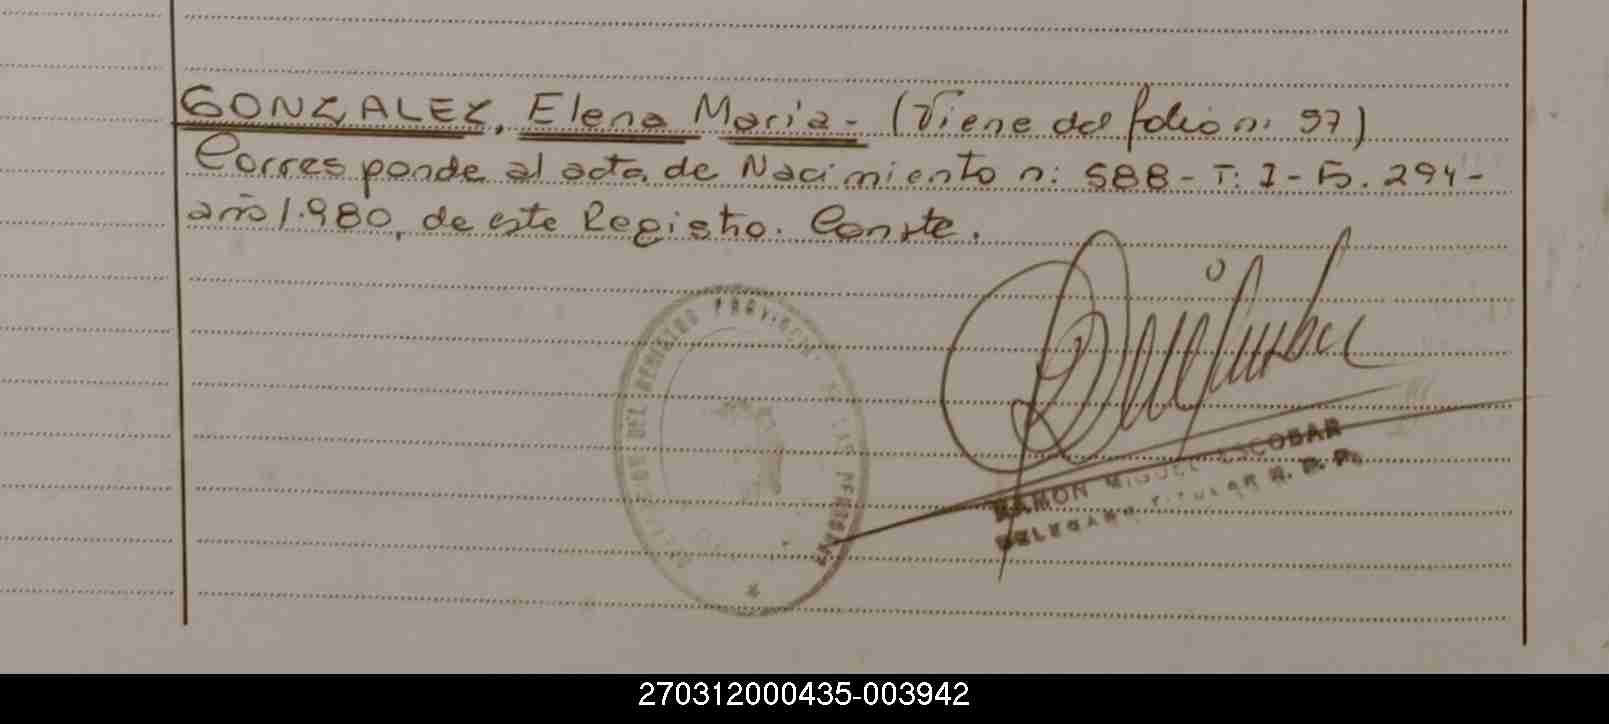 GONZALEZ, Elena Maria - (Viene del folio n: 97)
Corresponde al acta de Nacimiento n: 588 - T: I - F. 294 -
año 1.980, de este Registro. Conste.
DEL REGISTRO PROVINCIAL DE LAS PERSONAS
RAMON MIGUEL ESCOBAR
DELEGADO TITULAR R. P. P.
270312000435-003942